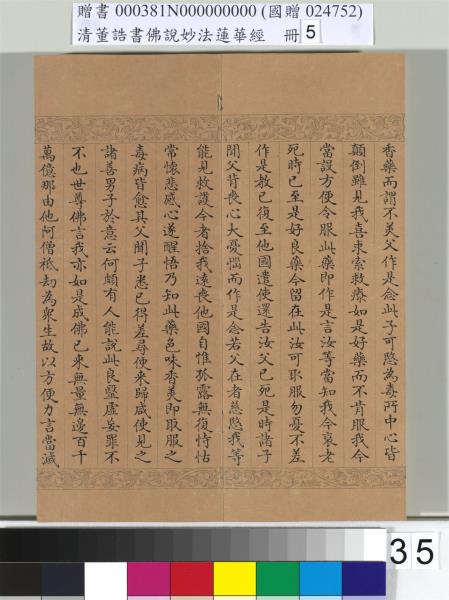 贈書 000381N000000000 (國贈 024752)
清董誥書佛說妙法蓮華經 冊 5
香藥而謂不美父作是念此子可愍為毒所中心皆
顛倒雖見我喜求索救療如是好藥而不肯服我今
當設方便令服此藥即作是言汝等當知我今衰老
死時已至是好良藥今留在此汝可取服勿憂不差
作是教已復至他國遣使還告汝父已死是時諸子
聞父背喪心大憂惱而作是念若父在者慈愍我等
能見救護今者捨我遠喪他國自惟孤露無復恃怙
常懷悲感心遂醒悟乃知此藥色味香美即取服之
毒病皆愈其父聞子悉已得差尋便來歸咸使見之
諸善男子於意云何頗有人能說此良醫虛妄罪不
不也世尊佛言我亦如是成佛已來無量無邊百千
萬億那由他阿僧祇劫為眾生故以方便力言當滅
35